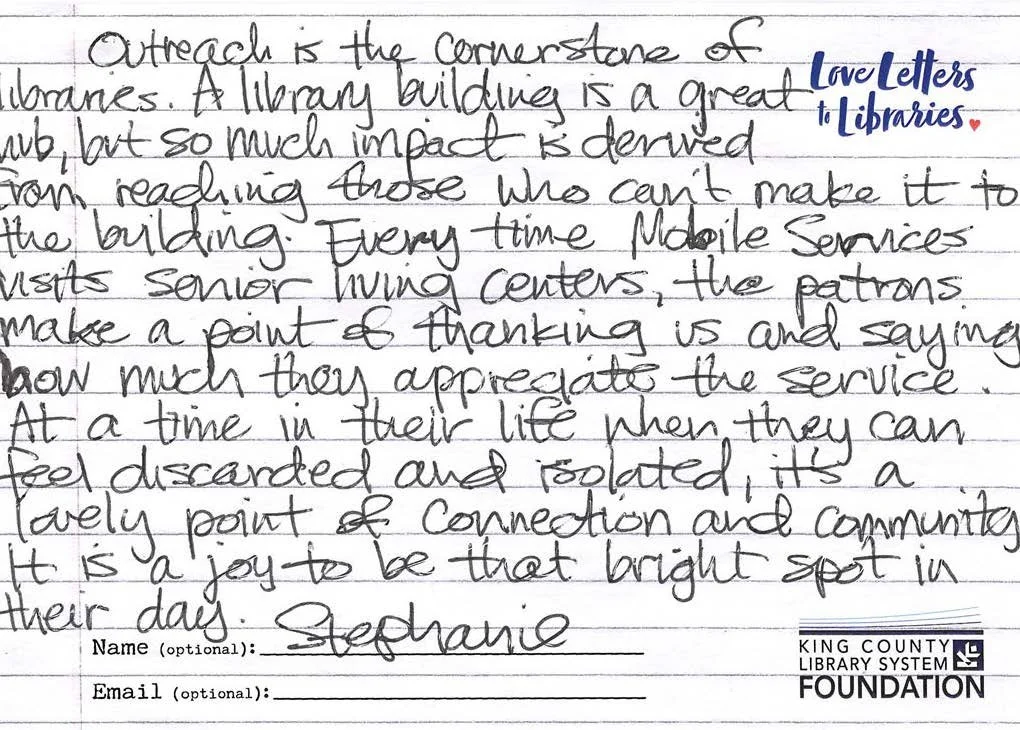 Outreach is the cornerstone of
libraries. A library building is a great
hub, but so much impact is derived
from reaching those who can't make it to
the building. Every time Mobile Services
visits senior living centers, the patrons
make a point of thanking us and saying
how much they appreciate the service.
At a time in their life when they can
feel discarded and isolated, it's a
lovely point of connection and community
It is a joy to be that bright spot in
their day.
Love Letters
to Libraries
Name (optional): Stephanie
Email (optional):
KING COUNTY
LIBRARY SYSTEM
FOUNDATION